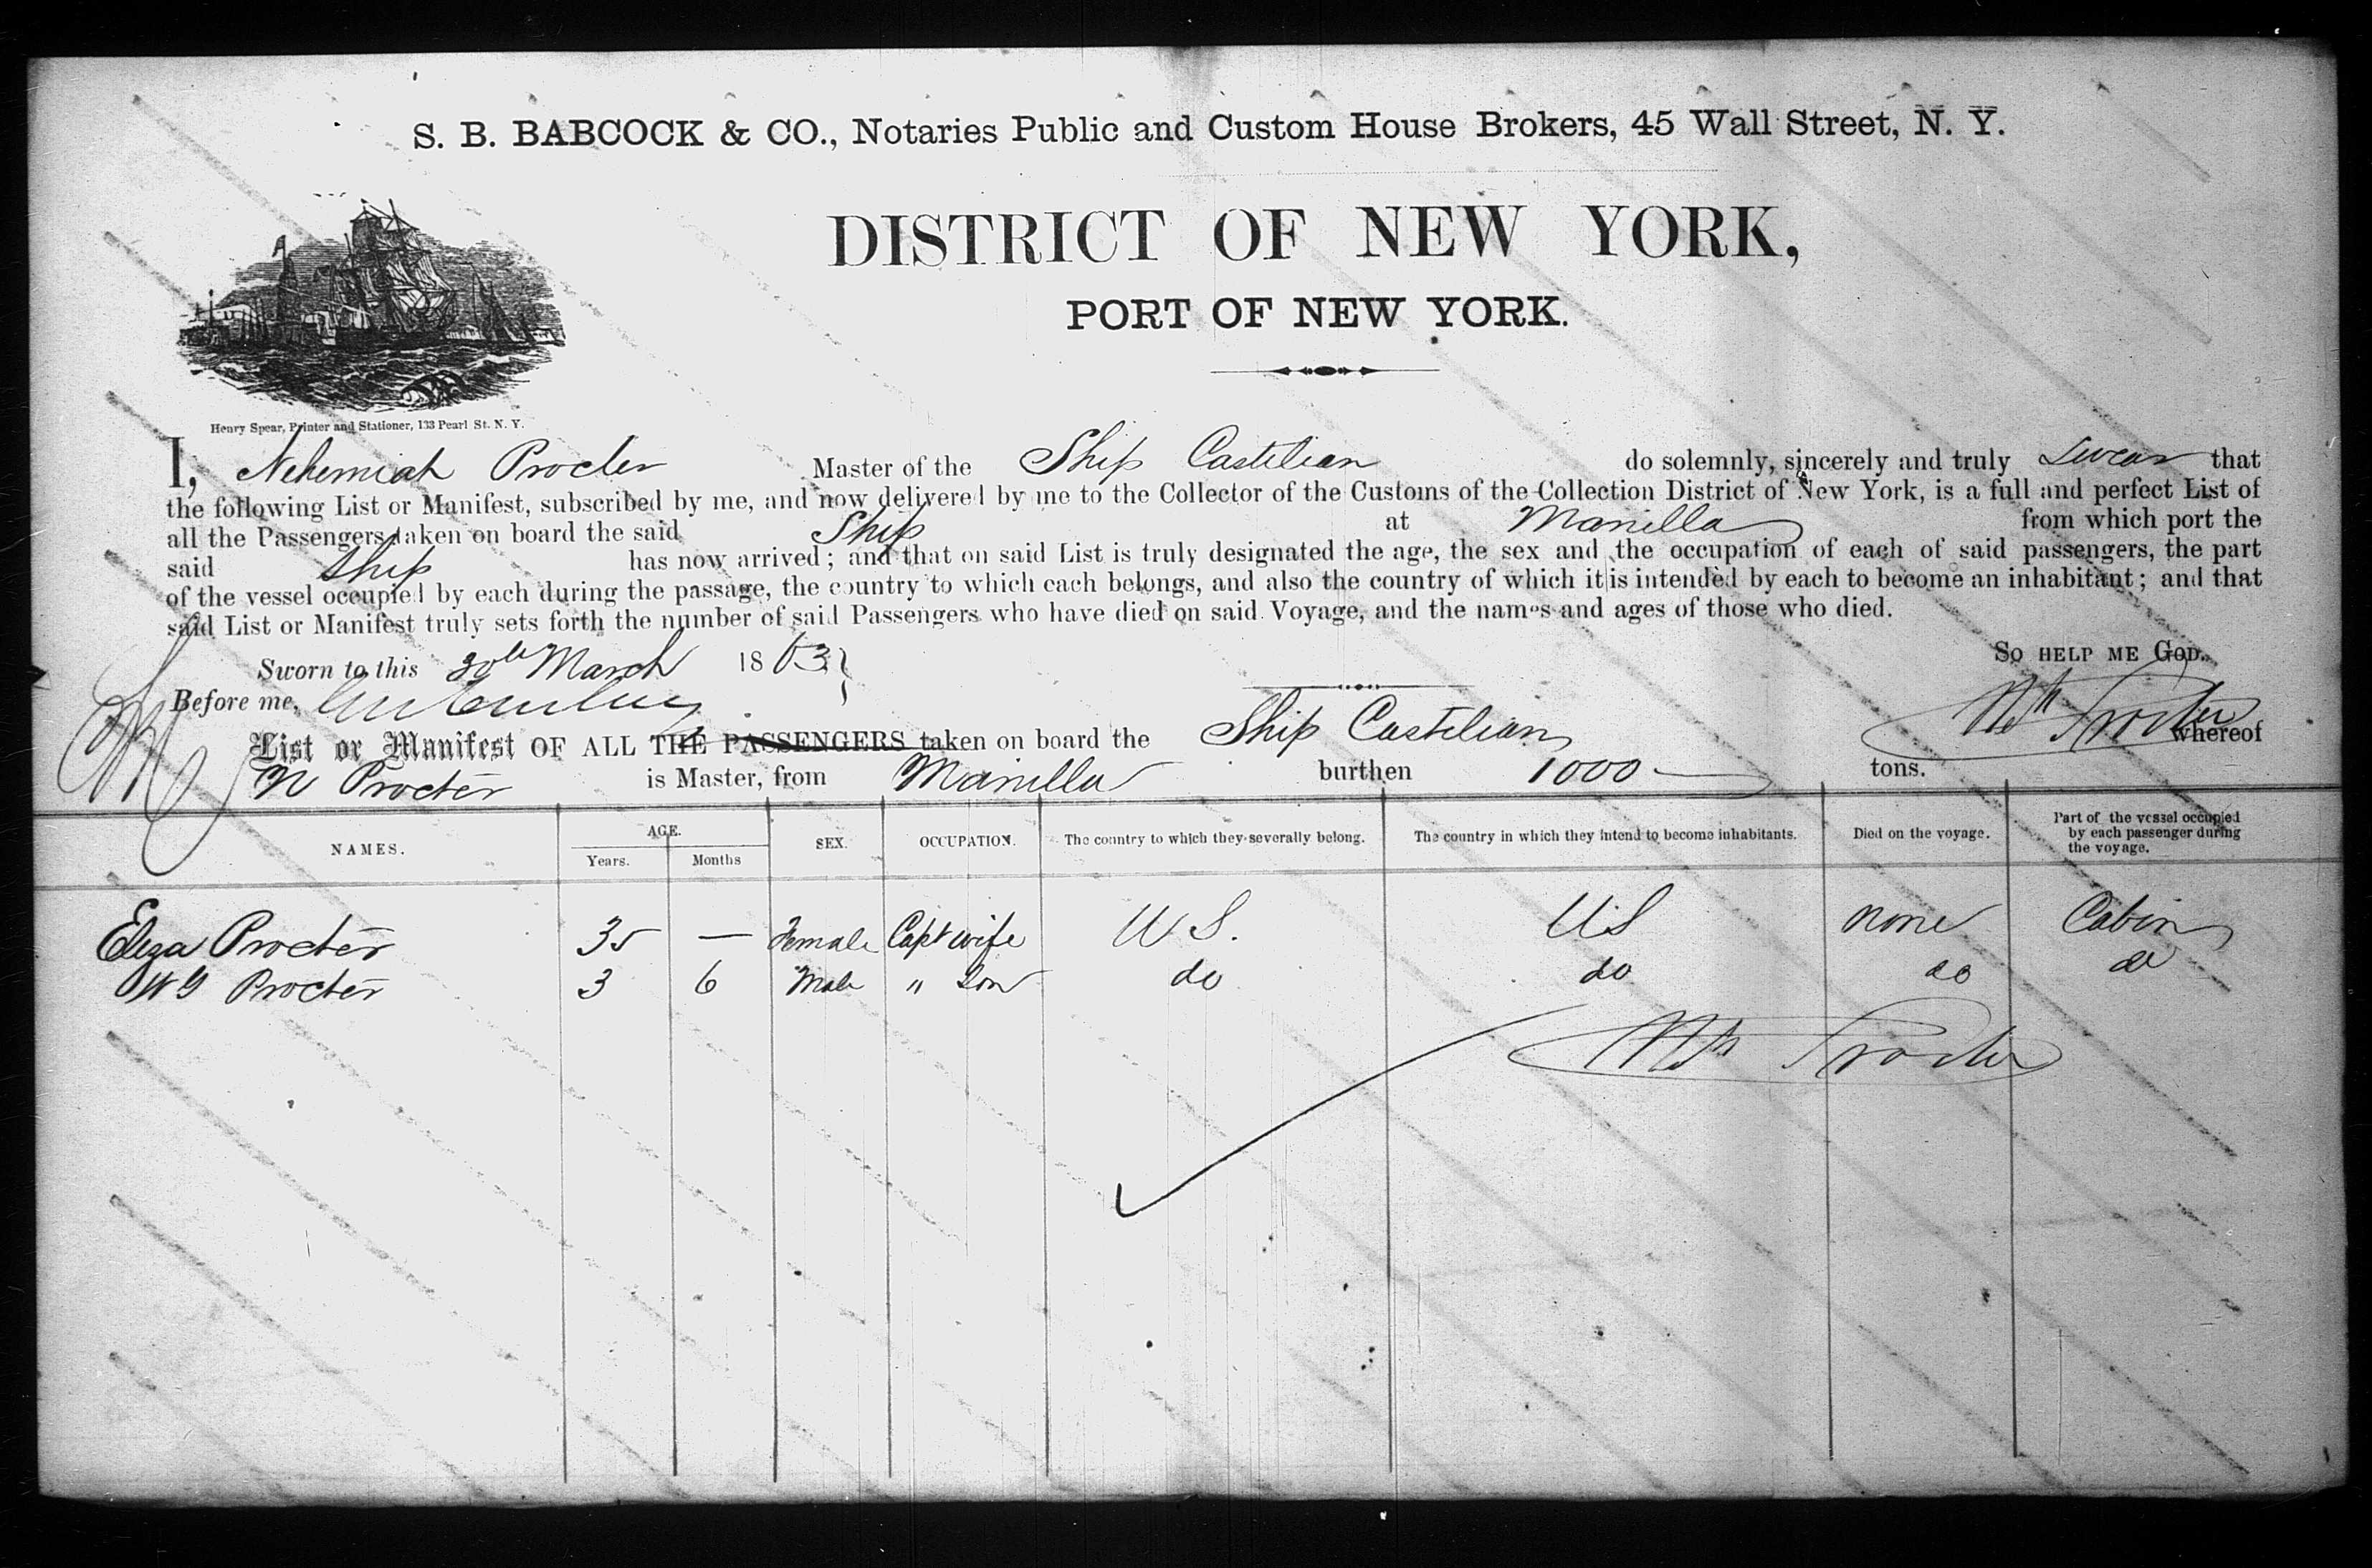 S. B. BABCOCK & CO., Notaries Public and Custom House Brokers, 45 Wall Street, N. Y.
DISTRICT OF NEW YORK,
PORT OF NEW YORK.
Henry Spear, Printer and Stationer, 133 Pearl St. N. Y.
I, Nehemiah Procter Master of the Ship Castilian do solemnly, sincerely and truly Swear that
the following List or Manifest, subscribed by me, and now delivered by me to the Collector of the Customs of the Collection District of New York, is a full and perfect List of
all the Passengers taken on board the said Ship at Manilla from which port the
said Ship has now arrived; and that on said List is truly designated the age, the sex and the occupation of each of said passengers, the part
of the vessel occupied by each during the passage, the country to which each belongs, and also the country of which it is intended by each to become an inhabitant; and that
said List or Manifest truly sets forth the number of said Passengers who have died on said Voyage, and the names and ages of those who died.
So HELP ME GOD.
Sworn to this 30th March 1863
Before me,
Nh Procter
List or Manifest OF ALL THE PASSENGERS taken on board the Ship Castilian whereof
N Procter is Master, from Manilla burthen 1000 tons.
NAMES. AGE. Years. Months SEX. OCCUPATION. The country to which they severally belong. The country in which they intend to become inhabitants. Died on the voyage. Part of the vessel occupied by each passenger during the voyage.
Eliza Procter 35 — Female Capt wife U S. US none Cabin
W G Procter 3 6 Male " Son do do do do
Nh Procter